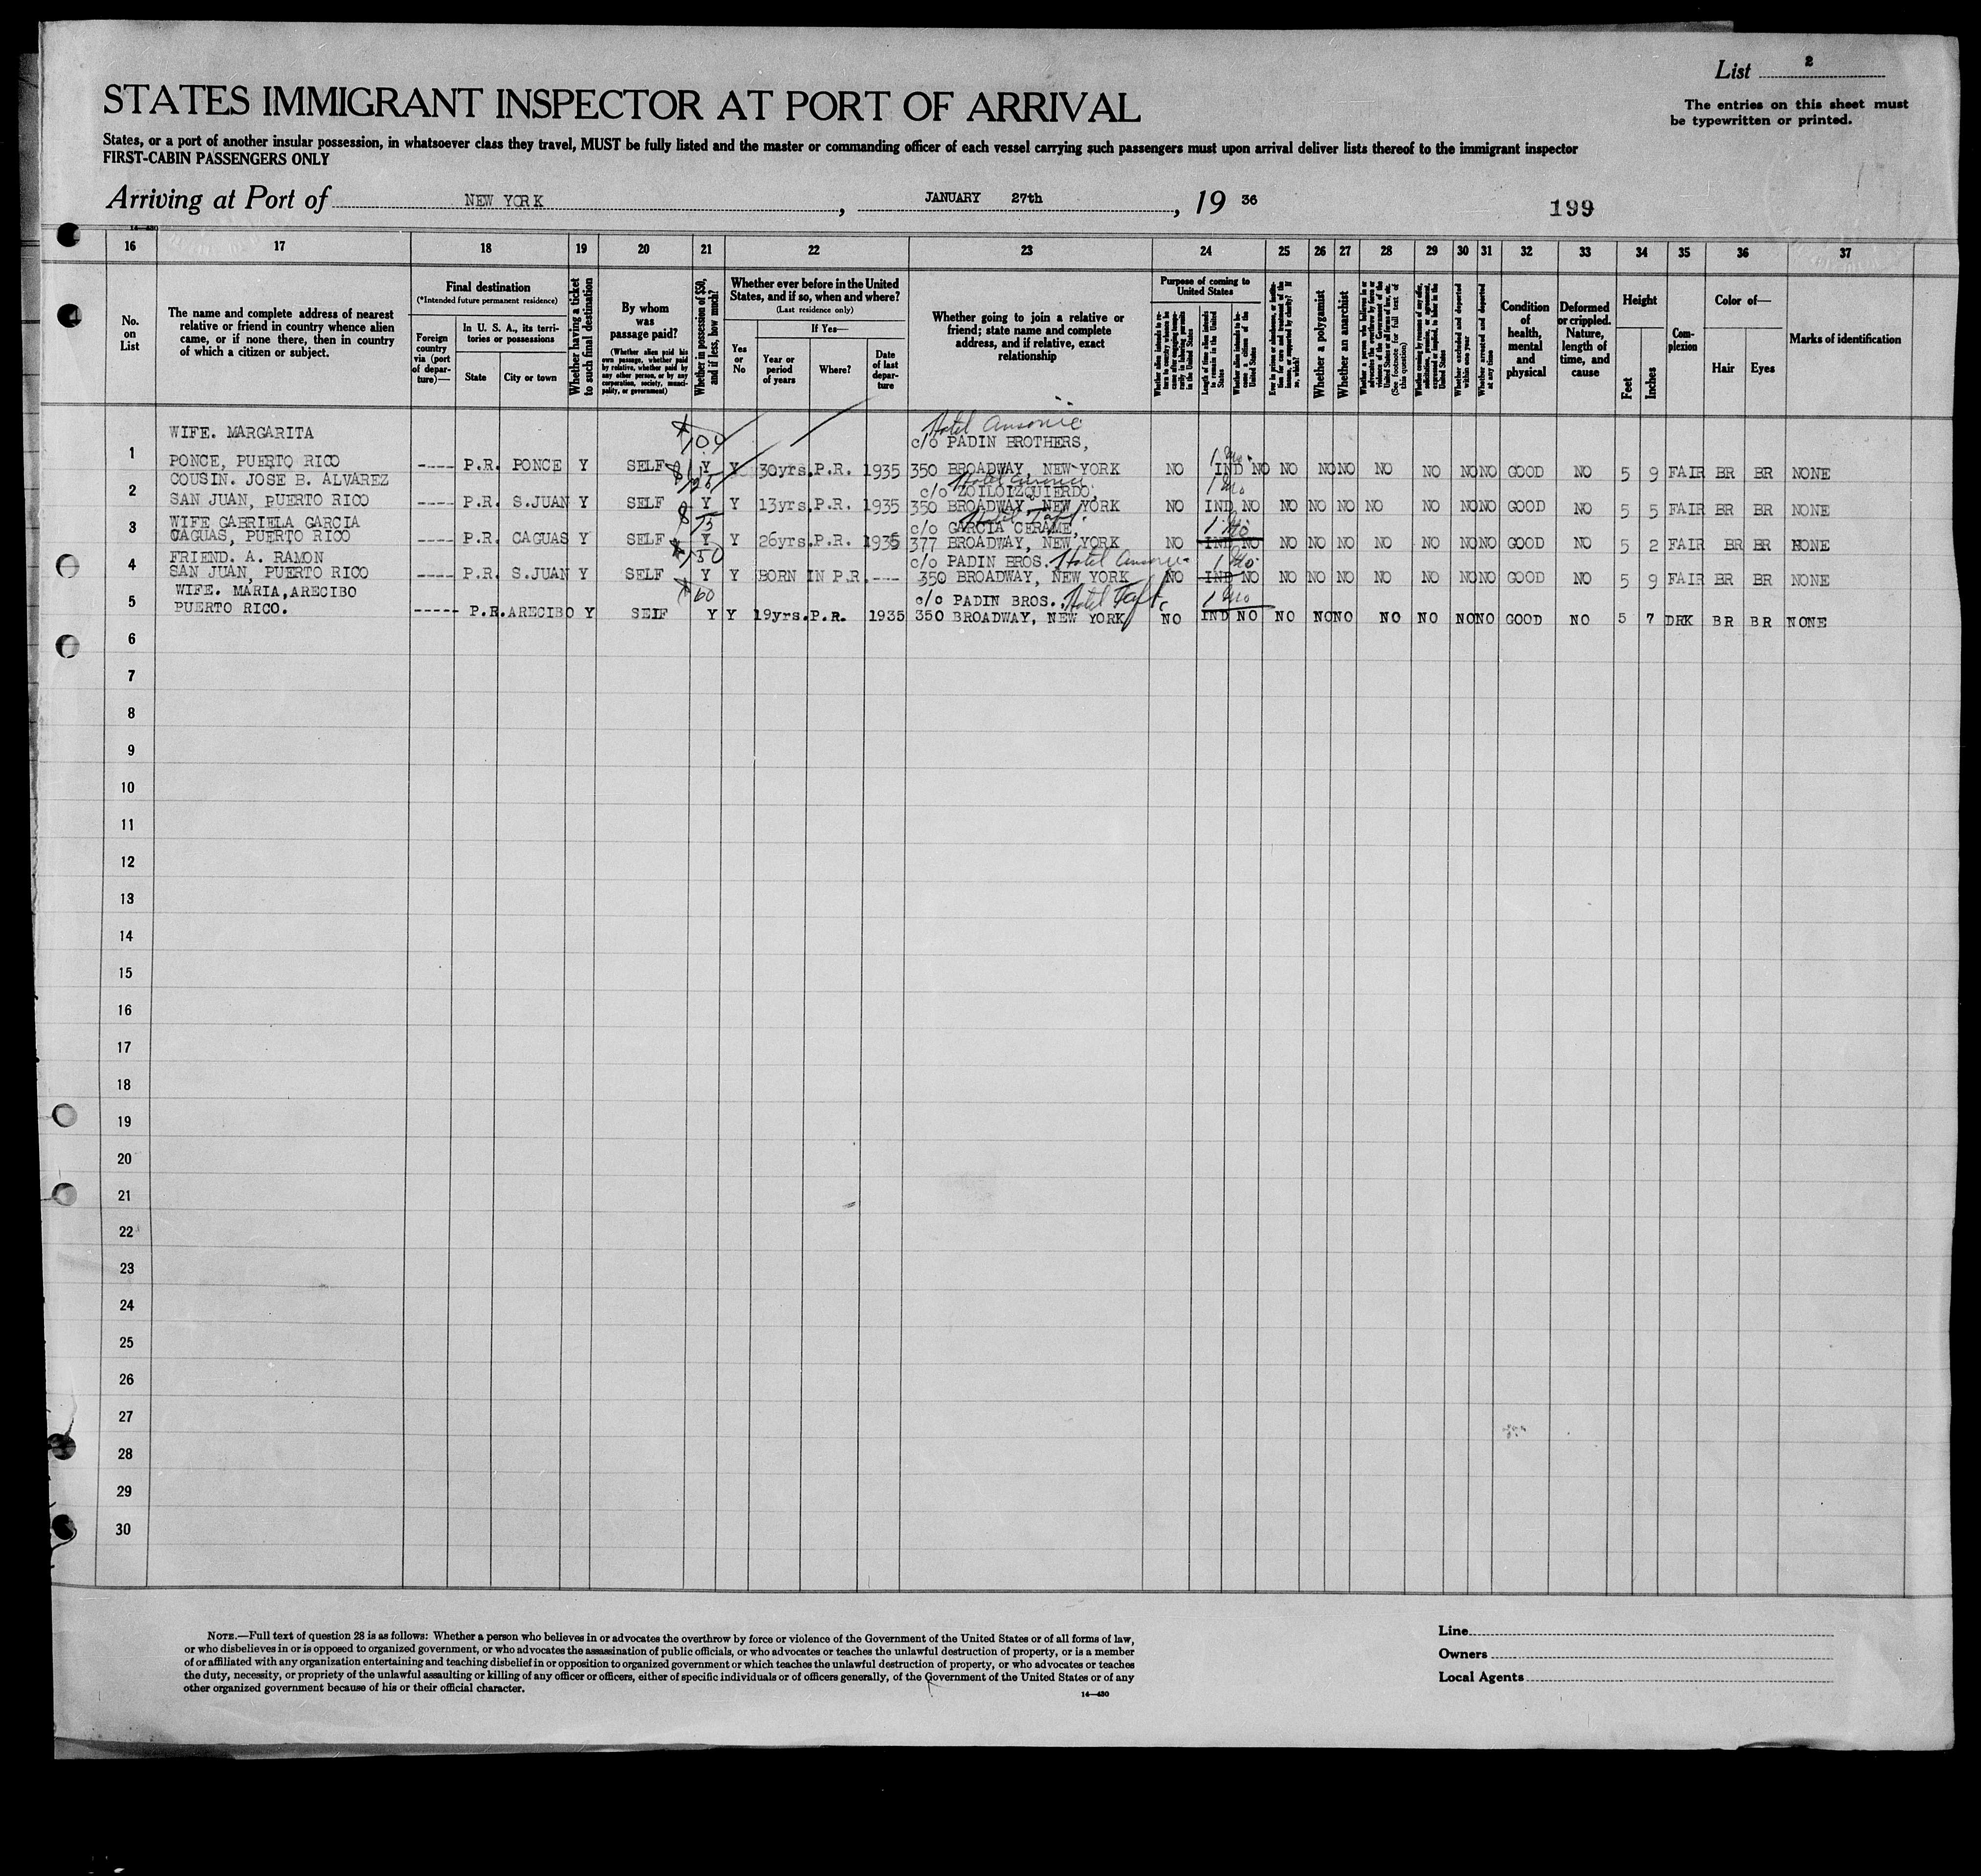 List 2
STATES IMMIGRANT INSPECTOR AT PORT OF ARRIVAL
The entries on this sheet must
be typewritten or printed.
States, or a port of another insular possession, in whatsoever class they travel, MUST be fully listed and the master or commanding officer of each vessel carrying such passengers must upon arrival deliver lists thereof to the immigrant inspector
FIRST-CABIN PASSENGERS ONLY
Arriving at Port of NEW YORK, JANUARY 27th, 19 36
199
14—430
16 17 18 19 20 21 22 23 24 25 26 27 28 29 30 31 32 33 34 35 36 37
No. on List
The name and complete address of nearest
relative or friend in country whence alien
came, or if none there, then in country
of which a citizen or subject.
Final destination
(*Intended future permanent residence)
Foreign country via (port of departure)—
In U. S. A., its territories or possessions
State
City or town
Whether having a ticket to such final destination
By whom was passage paid?
(Whether alien paid his own passage, whether paid by relative, whether paid by any other person, or by any corporation, society, municipality, or government)
Whether in possession of $50, and if less, how much?
Whether ever before in the United
States, and if so, when and where?
(Last residence only)
Yes or No
If Yes—
Year or period of years
Where?
Date of last departure
Whether going to join a relative or
friend; state name and complete
address, and if relative, exact
relationship
Purpose of coming to United States
Length of time alien intends to remain in the United States
Whether alien intends to become a citizen of the United States
Whether a polygamist
Whether an anarchist
(See footnote for full text of this question)
Whether excluded and deported within one year
Whether arrested and deported at any time
Condition of health, mental and physical
Deformed or crippled. Nature, length of time, and cause
Height
Feet
Inches
Complexion
Color of—
Hair
Eyes
Marks of identification
WIFE. MARGARITA $104 Hotel Ansonia c/o PADIN BROTHERS,
1 PONCE, PUERTO RICO ---- P.R. PONCE Y SELF Y Y 30yrs. P.R. 1935 350 BROADWAY, NEW YORK NO 1 mo. IND NO NO NO NO NO NO NO NO GOOD NO 5 9 FAIR BR BR NONE
COUSIN. JOSE B. ALVAREZ $125 Hotel Ansonia c/o ZOILOIZQUIERDO,
2 SAN JUAN, PUERTO RICO ---- P.R. S.JUAN Y SELF Y Y 13yrs. P.R. 1935 350 BROADWAY, NEW YORK NO 1 mo IND NO NO NO NO NO NO NO NO GOOD NO 5 5 FAIR BR BR NONE
WIFE GABRIELA GARCIA $75 Hotel Taft. c/o GARCIA CERAME,
3 CAGUAS, PUERTO RICO ---- P.R. CAGUAS Y SELF Y Y 26yrs. P.R. 1935 377 BROADWAY, NEW YORK NO 1 mo IND NO NO NO NO NO NO NO NO GOOD NO 5 2 FAIR BR BR NONE
FRIEND. A. RAMON $150 c/o PADIN BROS. Hotel Ansonia
4 SAN JUAN, PUERTO RICO ---- P.R. S.JUAN Y SELF Y Y BORN IN P.R. ---- 350 BROADWAY, NEW YORK NO 1 mo IND NO NO NO NO NO NO NO NO GOOD NO 5 9 FAIR BR BR NONE
WIFE. MARIA, ARECIBO $60 c/o PADIN BROS. Hotel Taft
5 PUERTO RICO. ----- P.R. ARECIBO Y SELF Y Y 19yrs. P.R. 1935 350 BROADWAY, NEW YORK NO 1 mo IND NO NO NO NO NO NO NO NO GOOD NO 5 7 DRK BR BR NONE
6
7
8
9
10
11
12
13
14
15
16
17
18
19
20
21
22
23
24
25
26
27
28
29
30
NOTE.—Full text of question 28 is as follows: Whether a person who believes in or advocates the overthrow by force or violence of the Government of the United States or of all forms of law,
or who disbelieves in or is opposed to organized government, or who advocates the assassination of public officials, or who advocates or teaches the unlawful destruction of property, or is a member
of or affiliated with any organization entertaining and teaching disbelief in or opposition to organized government or which teaches the unlawful destruction of property, or who advocates or teaches
the duty, necessity, or propriety of the unlawful assaulting or killing of any officer or officers, either of specific individuals or of officers generally, of the Government of the United States or of any
other organized government because of his or their official character.
14—430
Line
Owners
Local Agents